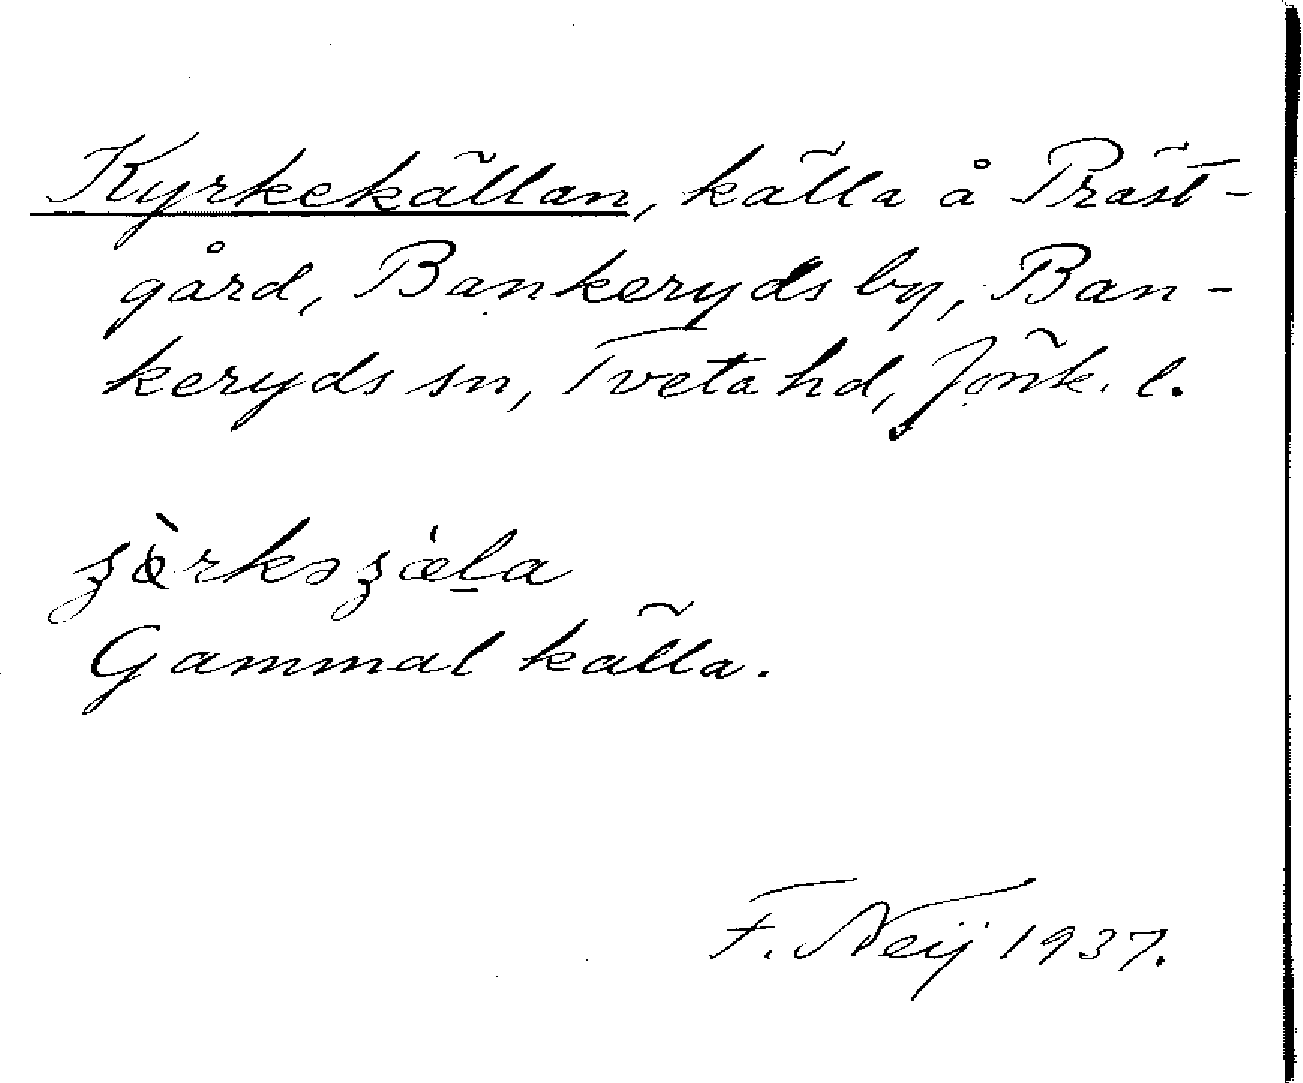 Kyrkekällan, källa å Präst-
gård, Bankeryds by, Ban-
keryds sn, Tveta hd, Jönk. l.
Gammal källa.
F. Neij 1937.